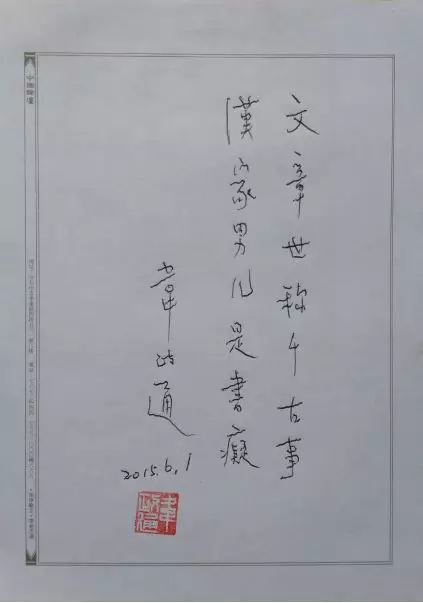 文章世稱千古事
漢家男兒是書癡
韋政通
2015.6.1
韋政通
中國論壇